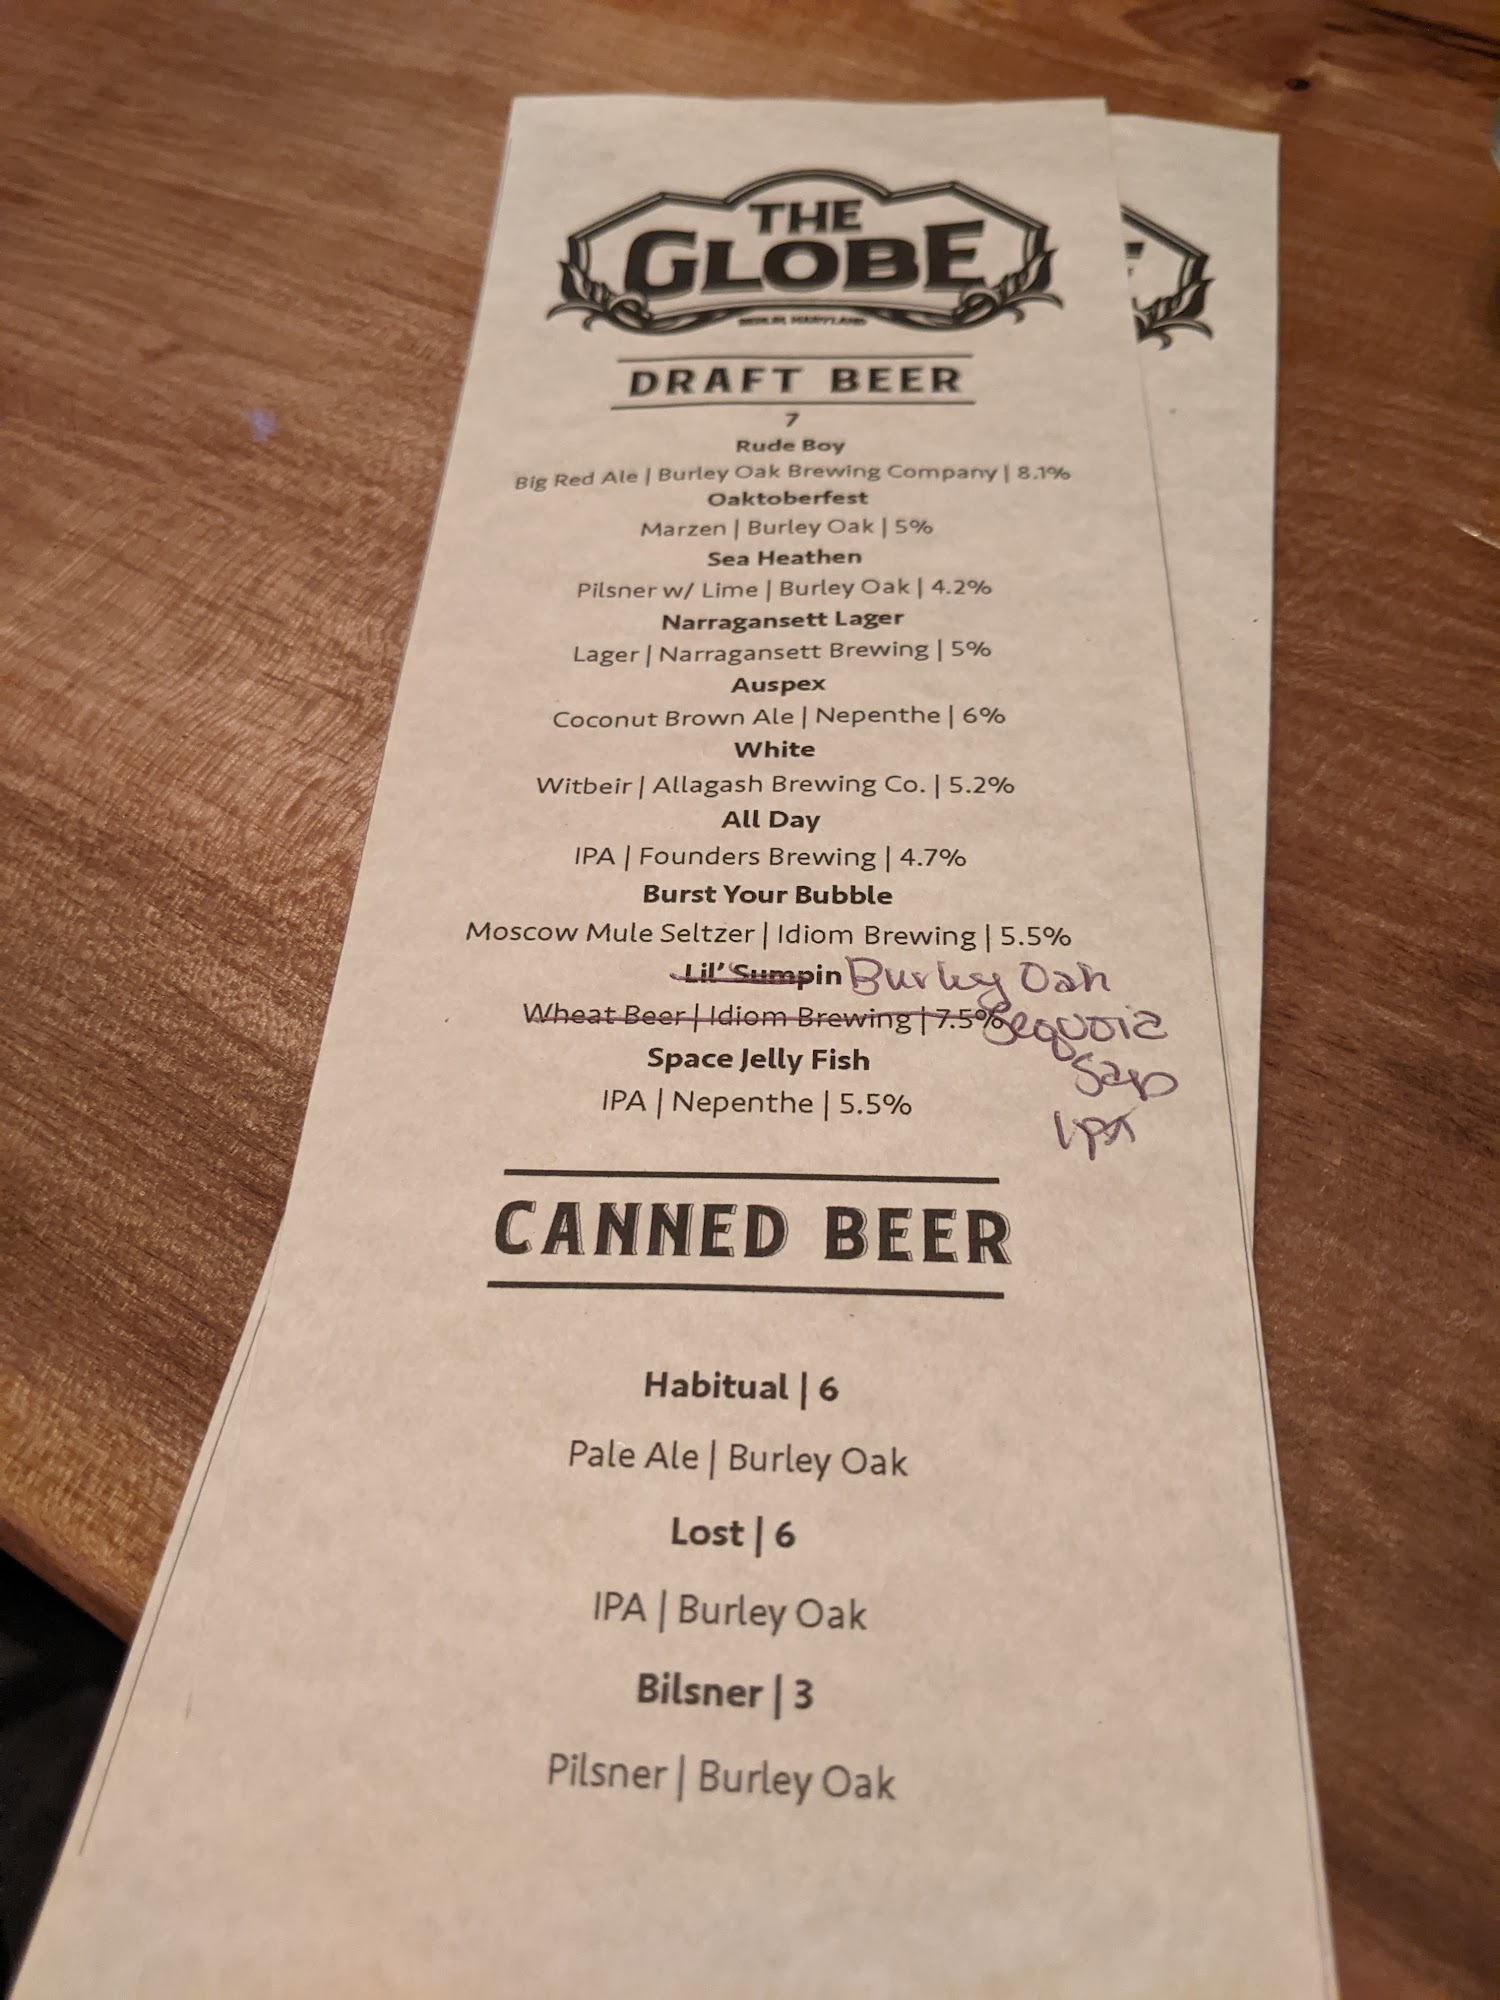 THE
GLOBE
BERLIN, MARYLAND
DRAFT BEER
7
Rude Boy
Big Red Ale | Burley Oak Brewing Company | 8.1%
Oaktoberfest
Marzen | Burley Oak | 5%
Sea Heathen
Pilsner w/ Lime | Burley Oak | 4.2%
Narragansett Lager
Lager | Narragansett Brewing | 5%
Auspex
Coconut Brown Ale | Nepenthe | 6%
White
Witbeir | Allagash Brewing Co. | 5.2%
All Day
IPA | Founders Brewing | 4.7%
Burst Your Bubble
Moscow Mule Seltzer | Idiom Brewing | 5.5%
Lil' Sumpin Burley Oak
Wheat Beer | Idiom Brewing | 7.5% Sequoia
Sap
IPA
Space Jelly Fish
IPA | Nepenthe | 5.5%
CANNED BEER
Habitual | 6
Pale Ale | Burley Oak
Lost | 6
IPA | Burley Oak
Bilsner | 3
Pilsner | Burley Oak